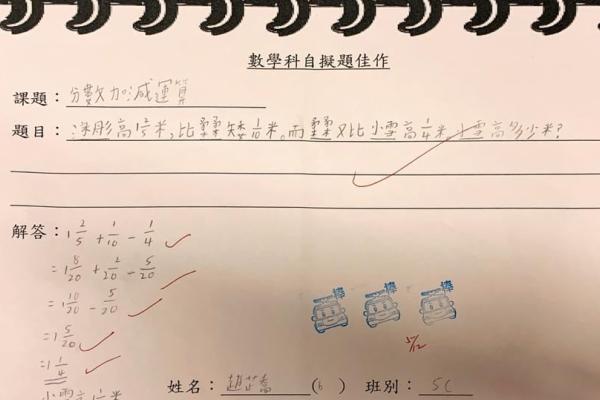 數學科自擬題佳作
課題：分數加減運算
題目：沐彤高1 2/5米，比柔柔矮1/10米。而柔柔又比小雪高1/4米，小雪高多少米？
解答：1 2/5 + 1/10 - 1/4
=1 8/20 + 2/20 - 5/20
=1 10/20 - 5/20
=1 5/20
=1 1/4
棒 棒 棒
姓名：趙芷喬 (6) 班別：5C